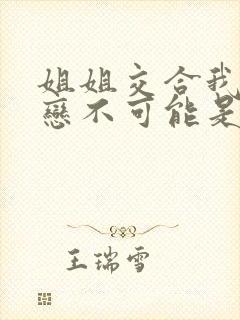 姐姐交合我
戀不可能是
王瑞雪